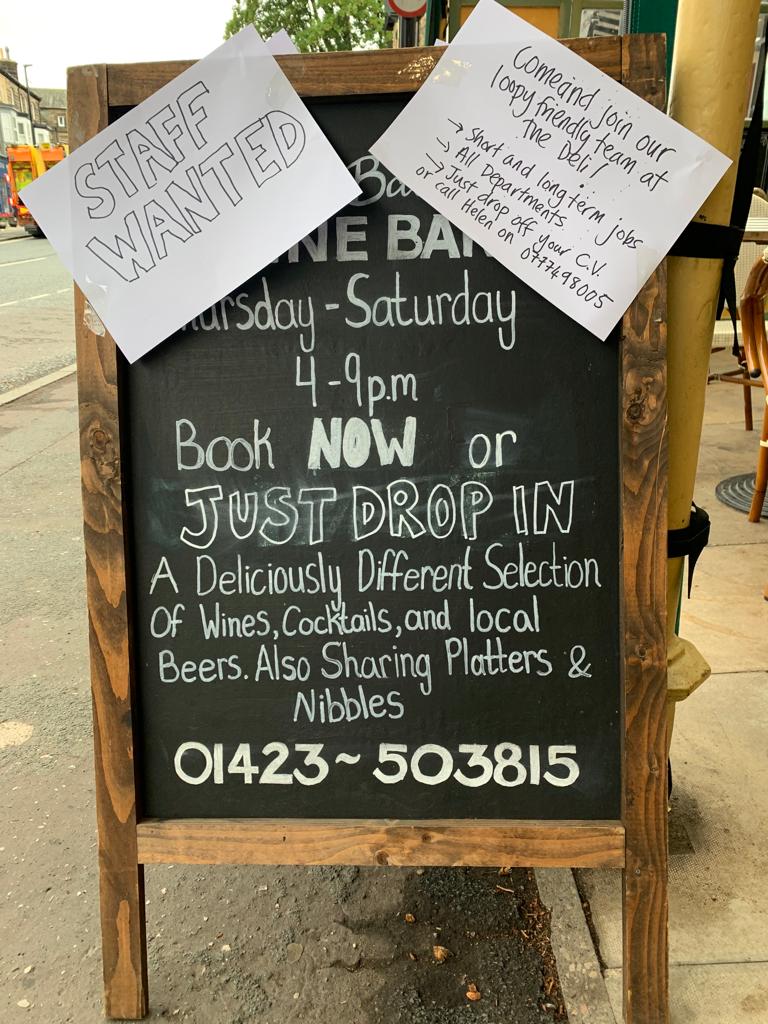 STAFF
WANTED
Come and join our
loopy friendly team at
The Deli!
→ Short and long term jobs
→ All Departments
→ Just drop off your C.V.
or call Helen on 0777498005
Thursday - Saturday
4 - 9 p.m
Book NOW or
JUST DROP IN
A Deliciously Different Selection
Of Wines, Cocktails, and local
Beers. Also Sharing Platters &
Nibbles
01423~503815